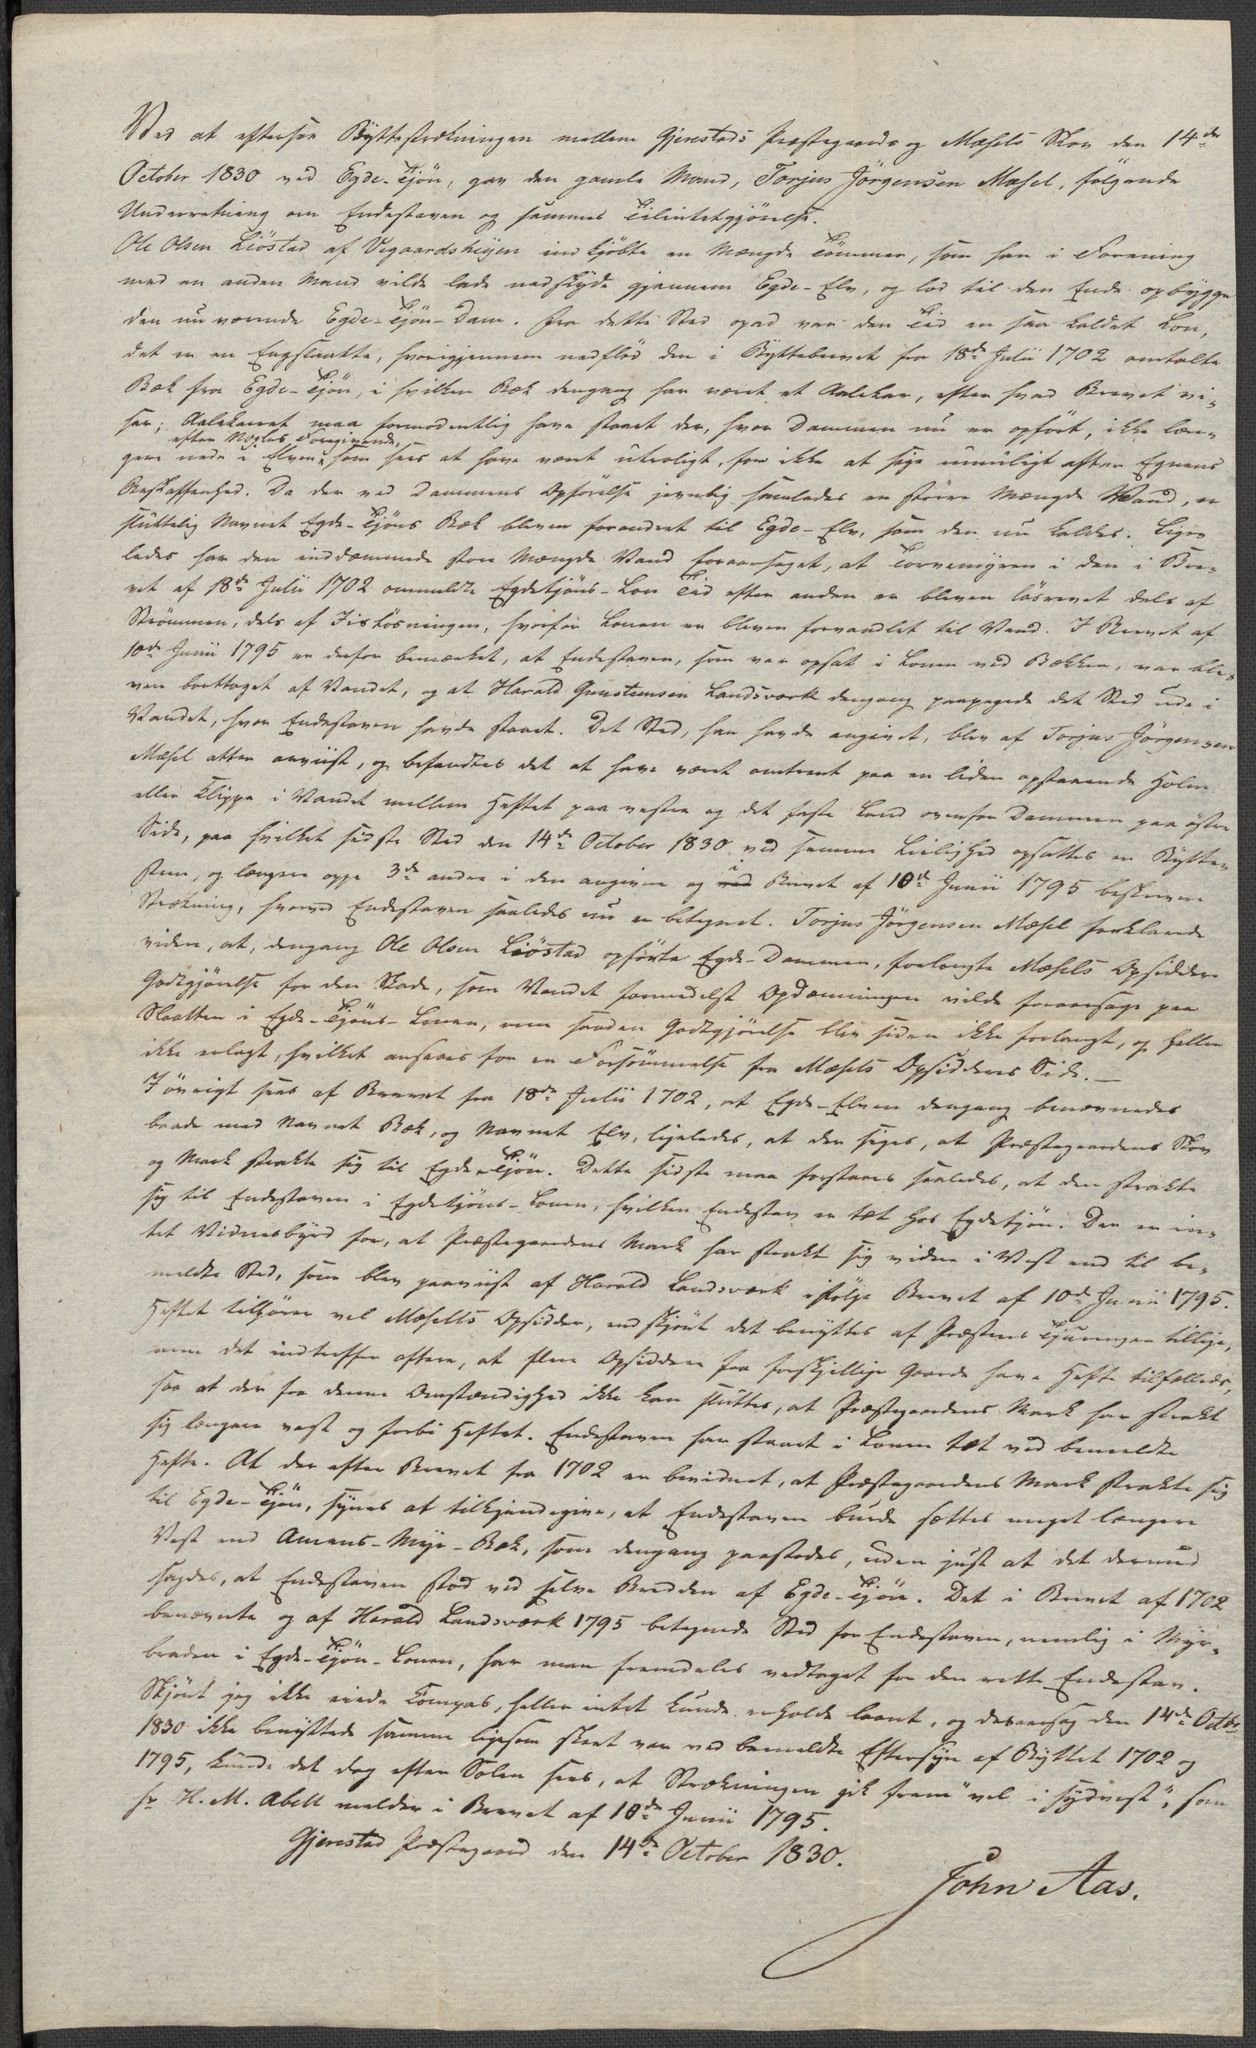 Ved at eftersee Byttestrækningen mellem Gjerestads Præstegaards og Mæsels Skov den 14de
October 1830 ved Egde-Tjön, gav den gamle Mand, Torjus Jörgensen Mæsel, følgende
Underretning om Endestaven og sammes Tilintetgjörelse.
Ole Olsen Liöstad af Vegaardsheijen indkjöbte en Mængde Tömmer, som han i Forening
med en anden Mand vilde lade nedskyde gjennem Egde-Elv, og lod til den Ende opbygge
den nu værende Egde-Tjön-Dam. Fra dette Sted opad var den Tid en saa kaldet Lon,
det er en Engslaatte, hvorigjennem nedflöd den i Byttebrevet fra 18de Julii 1702 omtalte
Bæk fra Egde-Tjön, i hvilken Bæk dengang har været et Aalekar, efter hvad Brevet vi-
ser; Aalekarret maa formodentlig have staaet der, hvor Dammen nu er opfört, ikke læn-
efter Nogles Foregivende,
gere nede i Elven, som sees at have været utroligt, for ikke at sige umuligt efter Egnens
Beskaffenhed. Da der ved Dammens Opförelse jevnlig samledes en större Mængde Vand, er
sluttelig Navnet Egde-Tjöns Bæk bleven forandret til Egde-Elv, som den nu kaldes. Lige-
ledes har den inddæmmede store Mængde Vand foraarsaget, at Torvemyren i den i Bre-
vet af 18de Julii 1702 ommeldte Egdetjöns-Lon Tid efter anden er bleven lösrevet dels af
Strömmen, dels af Iislösningen, hvorfor Lonen er bleven forvandlet til Vand. I Brevet af
10de Junii 1795 er derfor bemærket, at Endestaven, som var opsat i Lonen ved Bækken, var ble-
ven borttaget af Vandet, og at Harald Gunstensen Landsværk dengang paapegede det Sted ude i
Vandet, hvor Endestaven havde staaet. Det Sted, han havde angivet, blev af Torjus Jörgensen
Mæsel atter anviist, og befandtes det at have været omtrent paa en liden opstaaende Holm
eller Klippe i Vandet mellem Heftet paa vestre og det faste Land ovenfor Dammen paa östre
Side, paa hvilket sidste Sted den 14de October 1830 ved samme Leilighed opsattes en Bytte-
steen, og længere oppe 3de andre i den angivne og i Brevet af 10de Junii 1795 beskrevne
Strækning, hvorved Endestaven saaledes nu er betegnet. Torjus Jörgensen Mæsel forklarede
viden, at, dengang Ole Olsen Liöstad opförte Egde-Dammen, forlangte Mæsels Opsiddere
Godtgjörelse for den Skade, som Vandet formedelst Opdæmningen vilde foraarsage paa
Slaatten i Egde-Tjöns-Lonen, men saadan Godtgjörelse blev siden ikke forlangt, og heller
ikke erlagt, hvilket ansees for en Forsömmelse fra Mæsels Opsidderes Side. —
I övrigt sees af Brevet fra 18de Julii 1702, at Egde-Elven dengang benævnedes
baade med Navnet Bæk, og Navnet Elv, ligeledes, at der siges, at Præstegaardens Skov
og Mark strakte sig til Egde-Tjön. Dette sidste maa forstaaes saaledes, at den strakte
sig til Endestaven i Egdetjöns-Lonen, hvilken Endestav er tæt hos Egdetjön. Der er in-
tet Vidnesbyrd for, at Præstegaardens Mark har strakt sig videre i Vest end til be-
meldte Sted, som blev paaviist af Harald Landsværk ifölge Brevet af 10de Junii 1795.
Heftet tilhörer vel Mæsels Opsidder, endskjönt det benyttes af Præstens
men det indtreffer oftere, at flere Opsiddere fra forskjellige Gaarde have Hefte tilfælleds,
saa at der fra denne Omstændighed ikke kan sluttes, at Præstegaardens Mark har strakt
sig længere vest og forbi Heftet. Endestaven har staaet i Lonen tæt ved bemeldte
Hefte. At der efter Brevet fra 1702 er bevidnet, at Præstegaardens Mark strakte sig
til Egde-Tjön, synes at tilkjendegive, at Endestaven burde sættes meget længere
Vest end Amens-Myr-Bæk, som dengang paastodes, uden just at det dermed
sagdes, at Endestaven stod ved selve Bredden af Egde-Tjön. Det i Brevet af 1702
benævnte og af Harald Landsværk 1795 betegnede Sted for Endestaven, nemlig i Myr-
braden i Egde-Tjön-Lonen, har man fremdeles vedtaget for den rette Endestav.
Skjönt jeg ikke eiede Compas, heller intet kunde erholde laant, og desaarsag den 14de Octbr
1830 ikke benyttede samme ligesom skeet var ved bemeldte Eftersyn af Byttet 1702 og
1795, kunde det dog efter Solen sees, at Strækningen gik frem "vel i sydvest", som
Hr H. M. Abell melder i Brevet af 10de Junii 1795.
Gjerestad Præstegaard den 14de October 1830.
John Aas.